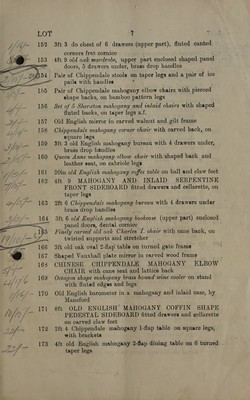 LOT 7
152 3ft 3 do chest of 6 drawers (upper part), fluted canted
corners fret cornice
153 4ft 3 old oak wardrobe, upper part enclosed panel
doors, 3 drawers under, brass drop handles
154 Pair of Chippendale stools on taper legs and a pair of ice
pails with handles
155 Pair of Chippendale mahogany elbow chairs with pierced
shape backs, on bamboo pattern legs
156 Set of 5 Sheraton mahogany and inlaid chairs with shaped
fluted backs, on taper legs s.f.
157 Old English mirror in carved walnut and gilt frame
158 Chippendale mahogany corner chair with carved back, on
square legs
159 3ft 3 old English mahogany bureau with 4 drawers under,
brass drop handles
160 Queen Anne mahogany elbow chair with shaped back and
leather seat, on cabriole legs
161 20in old English mahogany coffee table on ball and claw feet
162 4ft 9 MAHOGANY AND INLAID SERPENTINE
FRONT SIDEBOARD fitted drawers and cellarette, on
taper legs
163 2ft 6 Chippendale mahogany bureau with 4 drawers under
brass drop handles
164 3ft 6 old English mahogany bookcase (upper part) enclosed
panel doors, dental cornice
165 Finely carved old oak Charles I. chair with cane back, on
twisted supports and stretcher
166 3ft old oak oval 2-flap table on turned gate frame
167 Shaped Vauxhall plate mirror in carved wood frame
168 CHINESE CHIPPENDALE MAHOGANY ELBOW
CHAIR with cane seat and lattice back
169 Octagon shape mahogany brass bound wine cooler on stand
with fluted edges and legs
170 Old English barometer in a mahogany and inlaid case, by
Mansford
171 6ft OLD ENGLISH MAHOGANY COFFIN SHAPE
PEDESTAL SIDEBOARD fitted drawers and cellarette
on carved claw feet
172 2ft 4 Chippendale mahogany 1-flap table on square legs,
with brackets
173 4ft old English mahogany 2-flap dining table on 6 turned
taper legs